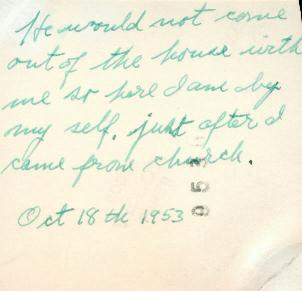 He would not come
out of the house with
me so here I am by
my self. just after I
came from church.
Oct 18th 1953
953